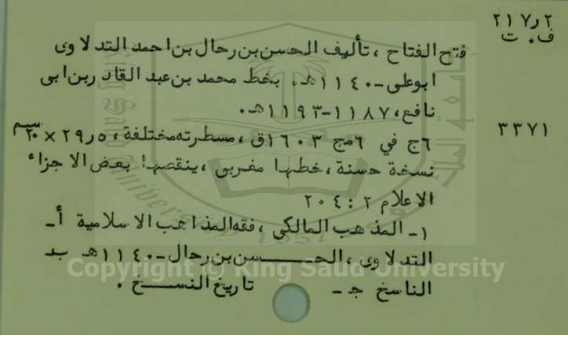 ٢ر٢١٧
ف٠ ت
فتح الفتاح ، تأليف الحسن بن رحال بن احمد التدلاوى
ابوعلى -١١٤٠هـ، بخط محمد بن عبد القادر بن ابى
نافع، ١١٨٧-١١٩٣هـ.
٣٣٧١
٦ج في ٦مج ١٦٠٣ق ، مسطرته مختلفة، ٥ر٢٩×٢٠سم
نسخة حسنة، خطها مغربى ، ينقصها بعض الاجزاء
الاعلام ٢ : ٢٠٤
١- المذهب المالكى ، فقه المذاهب الاسلامية أ-
التدلاوى ، الحسن بن رحال -١١٤٠هـ ب-
الناسخ جـ - تاريخ النسخ .
Copyright © King Saud University